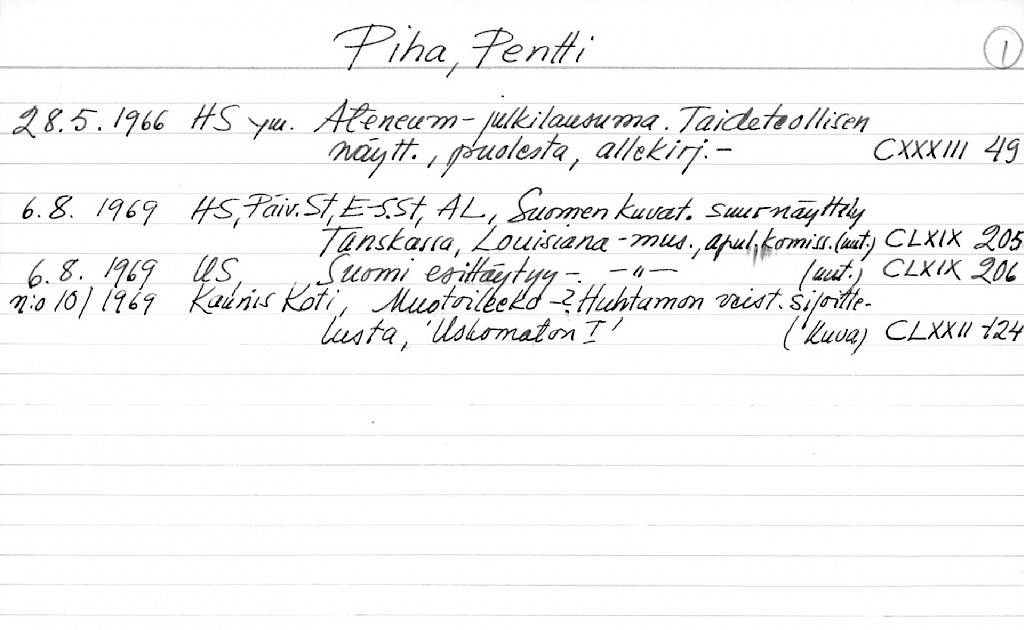 Piha, Pentti 1
28.5.1966 HS ym. Ateneum-julkilausuma. Taideteollisen
näytt., puolesta, allekirj.-
CXXXIII 49
6.8. 1969 HS, Päiv.St, E-S.St, AL, Suomen kuvat. suurnäyttely
Tanskassa, Louisiana-mus., apul. komiss. (uut.) CLXIX 205
6.8. 1969 US, Suomi esittäytyy -. -"- (uut.) CLXIX 206
n:o 10/1969 Kaunis Koti, Muotoileeko -? Huhtamon veist. sijoitte-
lusta, 'Uskomaton I' (kuva) CLXXII 124